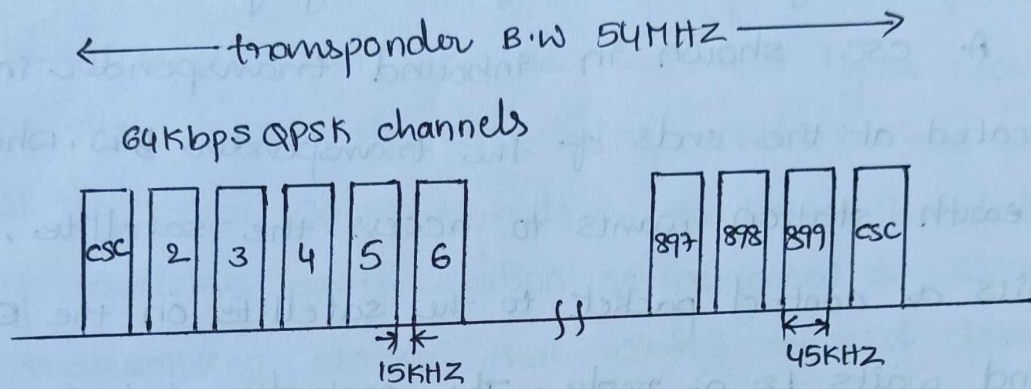 transponder B.W 54MHZ
64Kbps QPSK channels
CSC 2 3 4 5 6 897 898 899 CSC
15KHZ 45KHZ